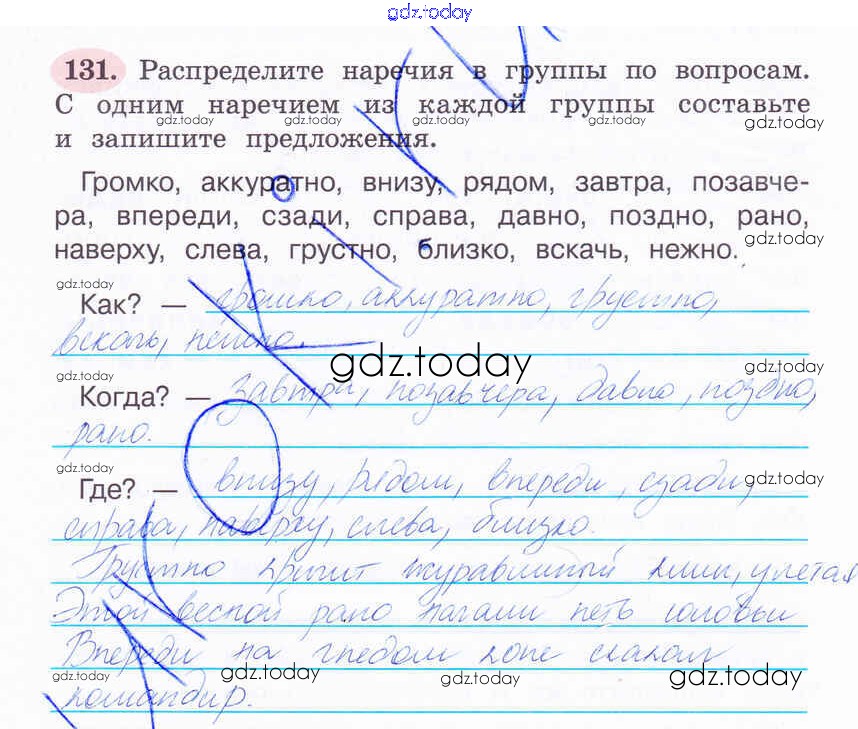 gdz.today
131. Распределите наречия в группы по вопросам.
С одним наречием из каждой группы составьте
gdz.today gdz.today gdz.today gdz.today gdz.today
и запишите предложения.
Громко, аккуратно, внизу, рядом, завтра, позавче-
ра, впереди, сзади, справа, давно, поздно, рано,
gdz.today
наверху, слева, грустно, близко, вскачь, нежно.
gdz.today
Как? — громко, аккуратно, грустно,
вскачь, нежно.
gdz.today
gdz.today gdz.today
Когда? — завтра, позавчера, давно, поздно,
рано.
gdz.today
Где? — внизу, рядом, впереди, сзади,
gdz.today
справа, наверху, слева, близко.
gdz.today
Грустно кричит журавлиный клин, улетая
Этой весной рано начали петь соловьи
Впереди на гнедом коне скакал
gdz.today gdz.today gdz.today
командир.